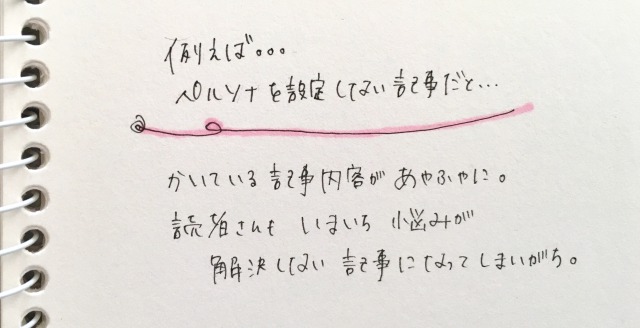 例えば。。。
ペルソナを設定してない記事だと…
かいている記事内容があやふやに。
読者さんも いまいち 悩みが
解決しない 記事になってしまいがち。